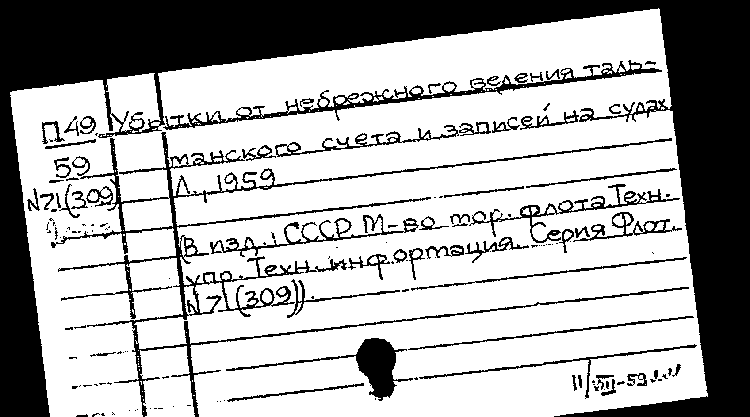 П49 Убытки от небрежного ведения таль-
59 манского счета и записей на судах
N71(309) Л., 1959
(В изд.: СССР М-во мор. флота. Техн.
упр. Техн. информация. Серия Флот.
N71(309)).
11/VIII-59